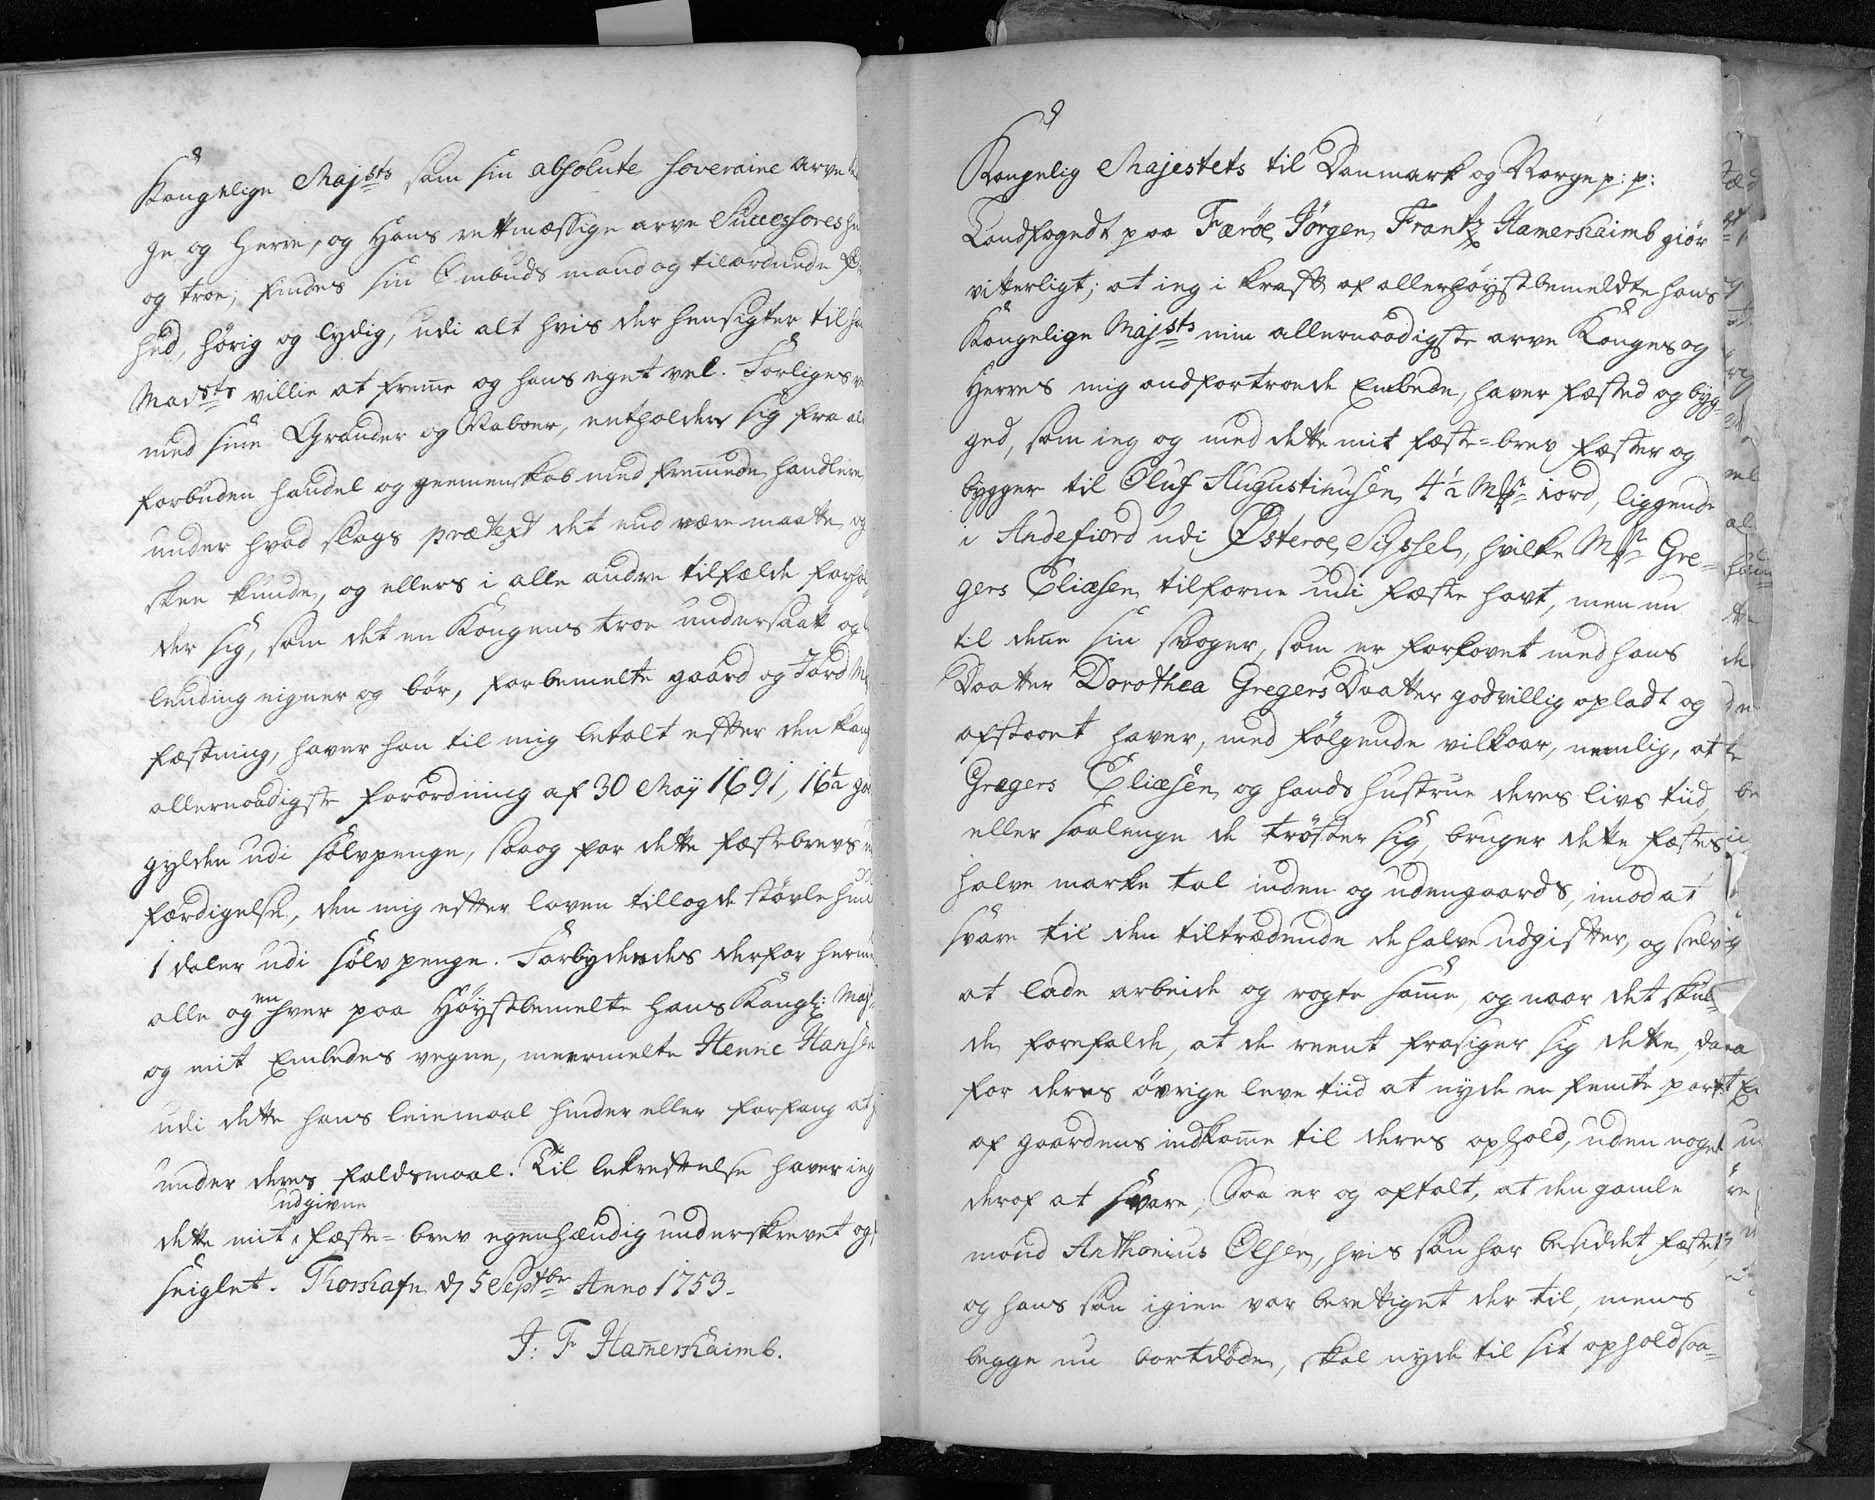 Kongelige Majsts som sin absolute soveraine arve
ge og Herre, og Hans rettmæssige arve Successores
og troe; findes sin Embuds mand og tilordnede
hed, hörig og lydig, udi alt hvis der hensigter til
Maysts villie at freme og hans eget vel. Forliges
med sine Grander og Naboer, entholder sig fra al
forbuden handel og geemenskab med fremede handlere
under hvad slags prætext det end være maatte, og
skee kunde, og ellers i alle andre tilfælde forhol
der sig, som det en Kongens troe undersaat og
lending eigner og bör, forbemelte gaard og Jord
fæstning, haver han til mig betalt efter den kong
allernaadigste forordning af 30 May 1691, 16½
gylden udi sölvpenge, saa og for dette fæstebrevs
færdigelse, den mig efter loven tillagde stövle
1 daler udi sölvpenge. Forbydendes derfor herme
alle og en hver paa Höystbemelte hans Kongl: Maj
og mit Embedes vegne, meermelte Henne Hansen
udi dette hans leiemaal hinder eller forfang at
under deres faldsmaal. Til bekreftelse haver ieg
dette mit udgivne fæste-brev egenhændig underskrevet og
seiglet. Thorshafn d 5 Septbr Anno 1753.
J: F Hamershaimb.
Kongelig Majestets til Danmark og Norge p: p:
Landfogedt paa Færöe, Jörgen Frantz Hamershaimb giör
vitterligt; at ieg i kraft af allerhöystbemeldte hans
Kongelige Majsts min allernaadigste arve Konges og
Herres mig andfortroede Embede, haver fæsted og byg-
ged, som ieg og med dette mit fæste-brev fæster og
bygger til Oluf Augustinusen 4½ Mkr iord, liggende
i Andefiord udi Österoe Syssel, hvilke Mkr Gre-
gers Eliæsen tilforne udi fæste havt, men nu
til dene sin svoger, som er forlovet med hans
Daatter Dorothea Gregers Daatter godvillig opladt og
afstaaet haver, med fölgende vilkaar, nemlig, at
Gregers Eliæsen og hands hustrue deres livs tiid,
eller saalenge de tröster sig, bruger dette fæstes
halve marke tal inden og udengaards, imod at
svare til den tiltrædende de halve udgifter, og selv
at lade arbeide og rögte same, og naar det skul-
de forefalde, at de reent frasiger sig dette, da
for deres övrige leve tiid at nyde en femte part
af gaardens indkome til deres ophold, uden noget
deraf at svare, Saa er og aftalt, at den gamle
mand Anthonius Olsen, hvis sön har besiddet fæstet,
og hans sön igien var berettiget der til, mens
begge nu bortdöde, skal nyde til sit ophold saa-